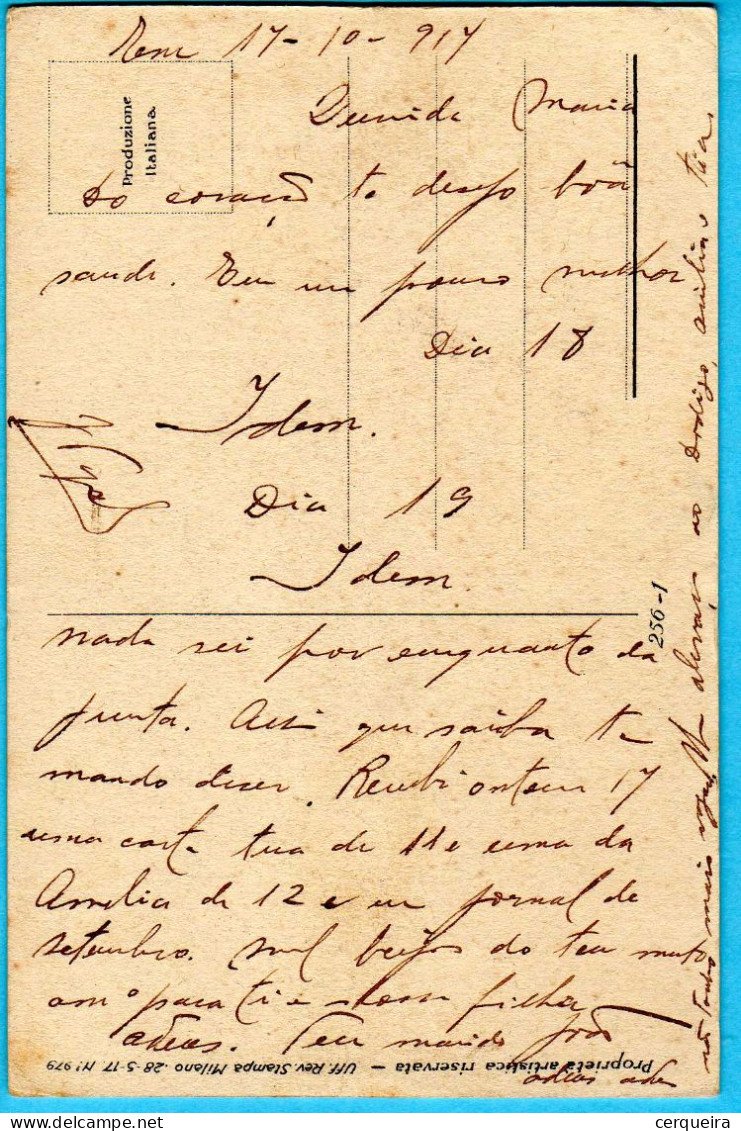 17-10-917
Produzione
Italiana.
Querida Maria
Do coração te desejo boã
saude. Eu um pouco melhor
Dia 18
Idem.
Dia 19
Idem
256-1
nada sei por emquanto da
junta. Assi que saiba te
mando dizer. Recebi ontem 17
uma carta tua de 11 e uma da
Amelia de 12 e um jornal de
setembro. Mil beijos do teu muto
amº para ti e nossa filha
adeus. Teu marido João
adeus adeus
abraços ao Rodrigo, Amilia e tia
não tenho mais
Proprietà artistica riservata — Uff. Rev. Stampa Milano. 28-5-17. N.º 979
cerqueira